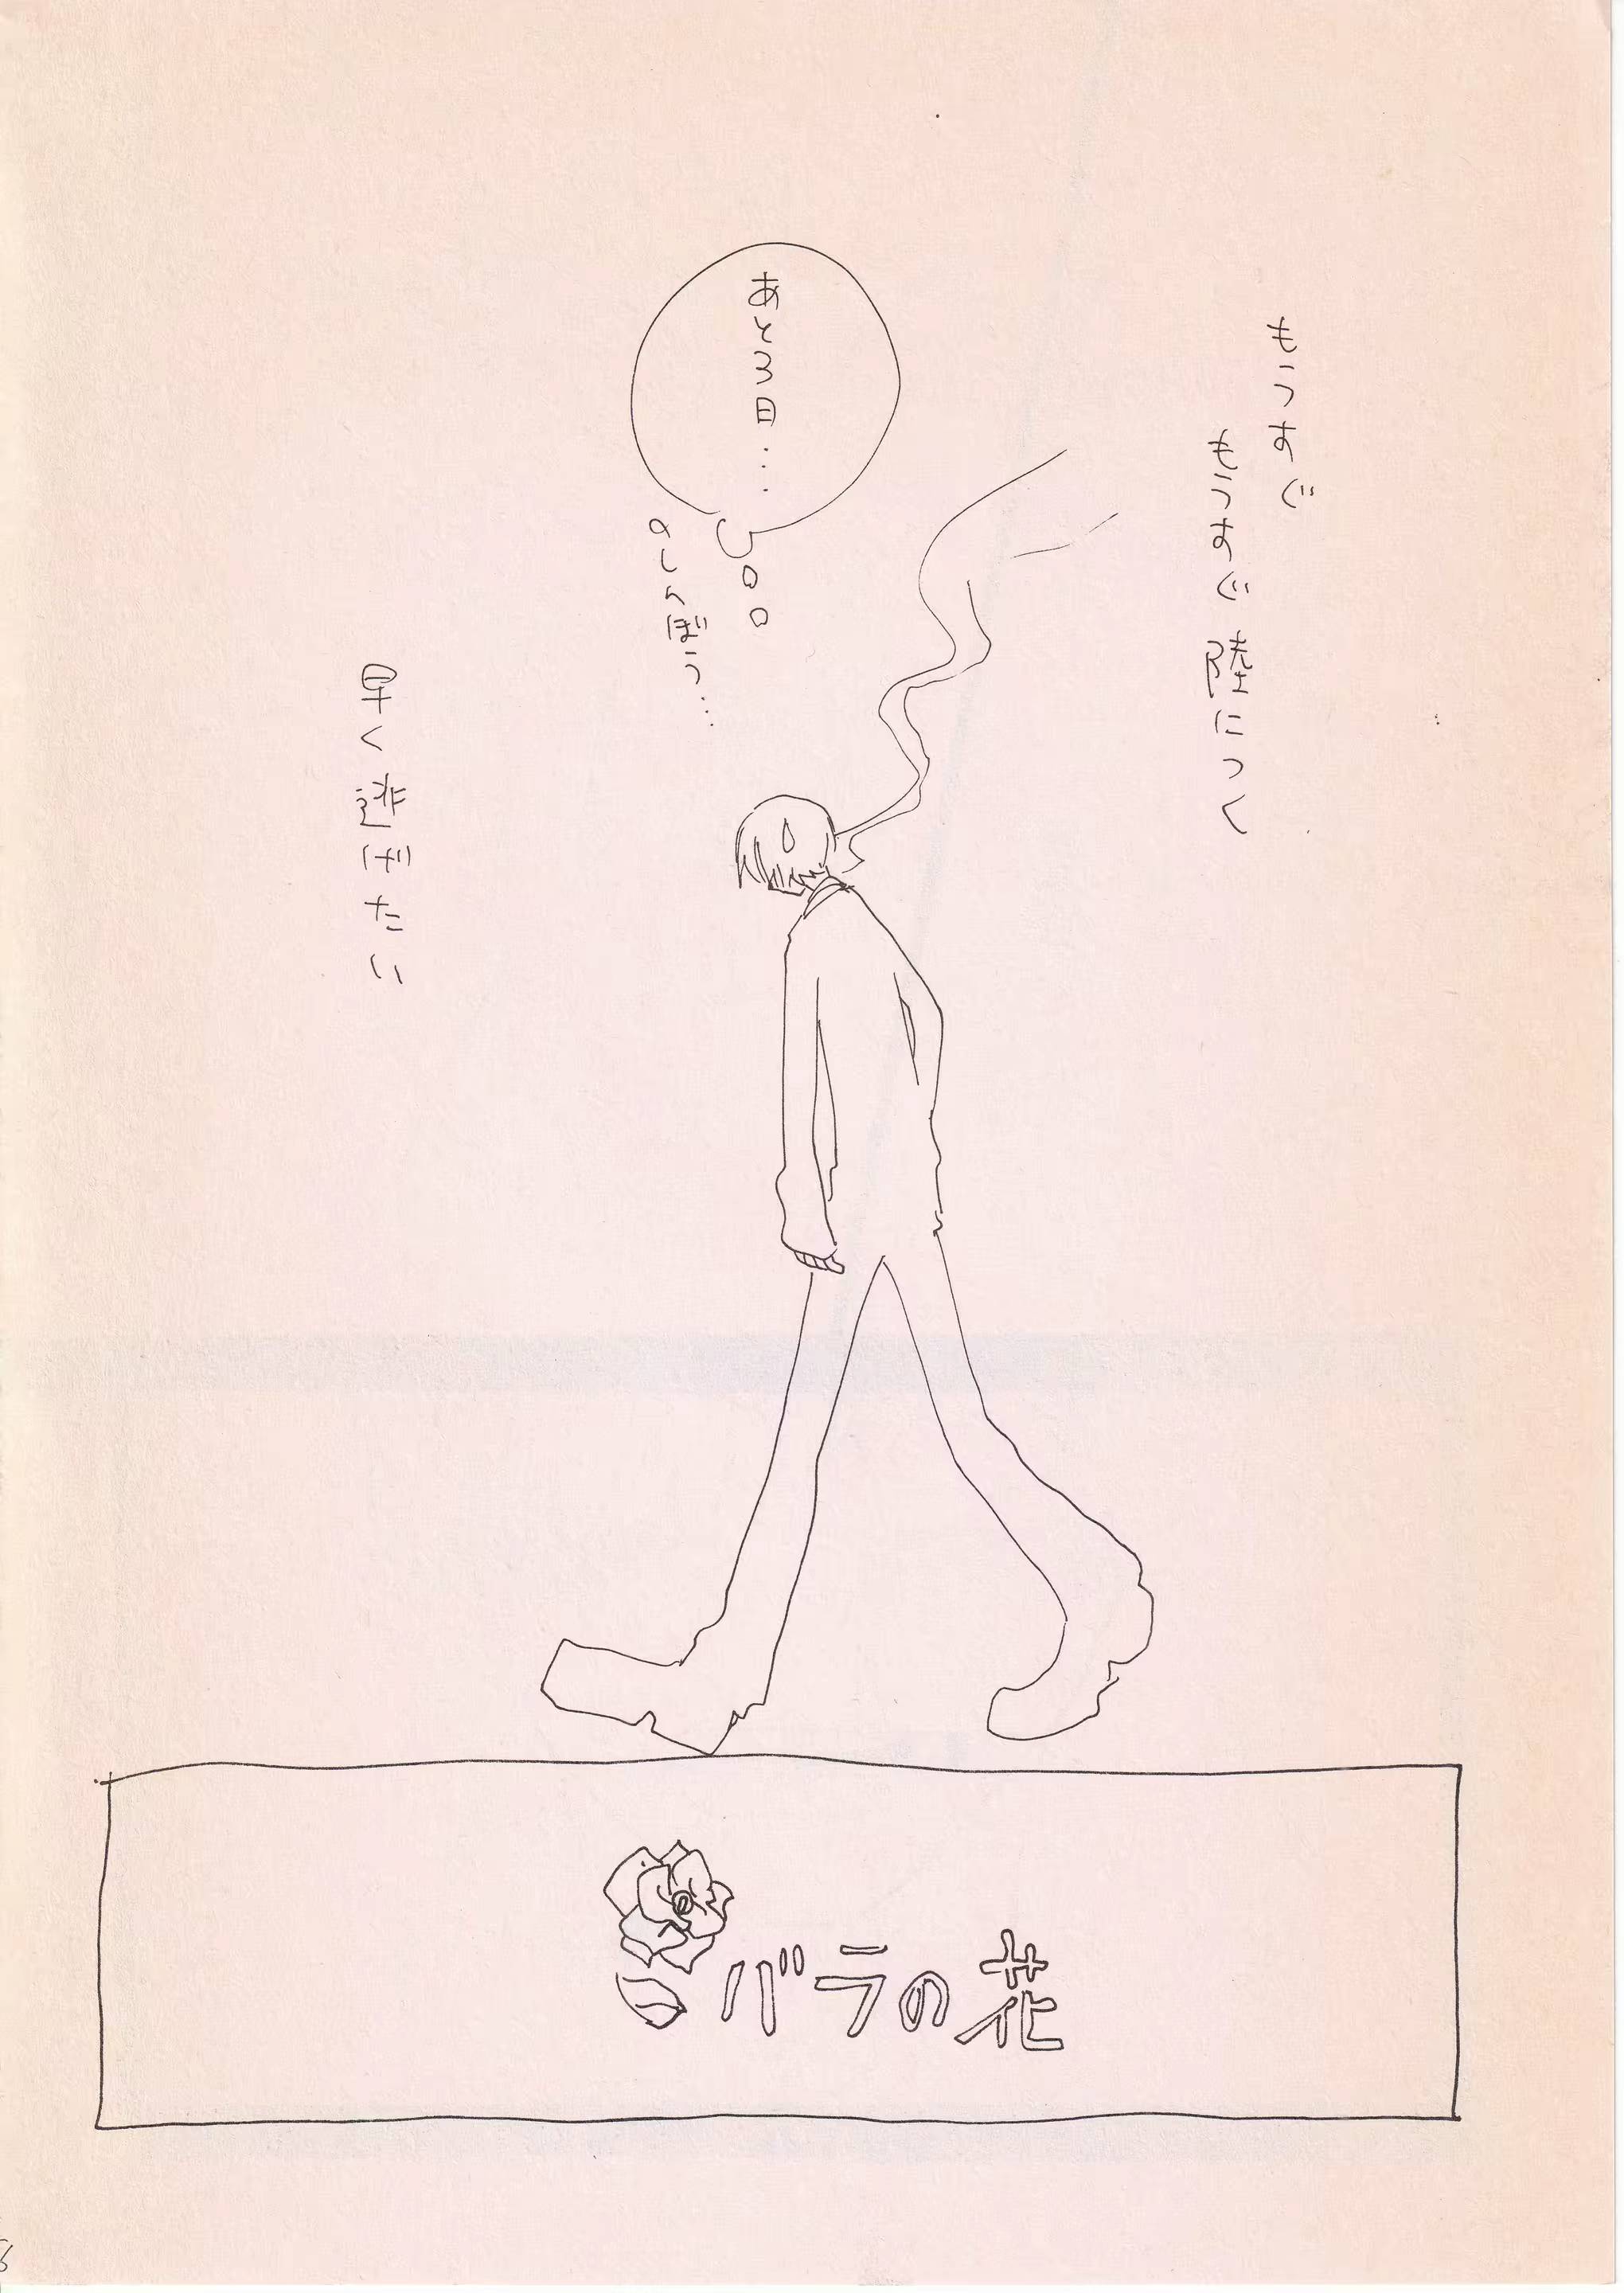 もうすぐ
もうすぐ陸につく
あと3日....
のしんぼう...
早く逃げたい
バラの花